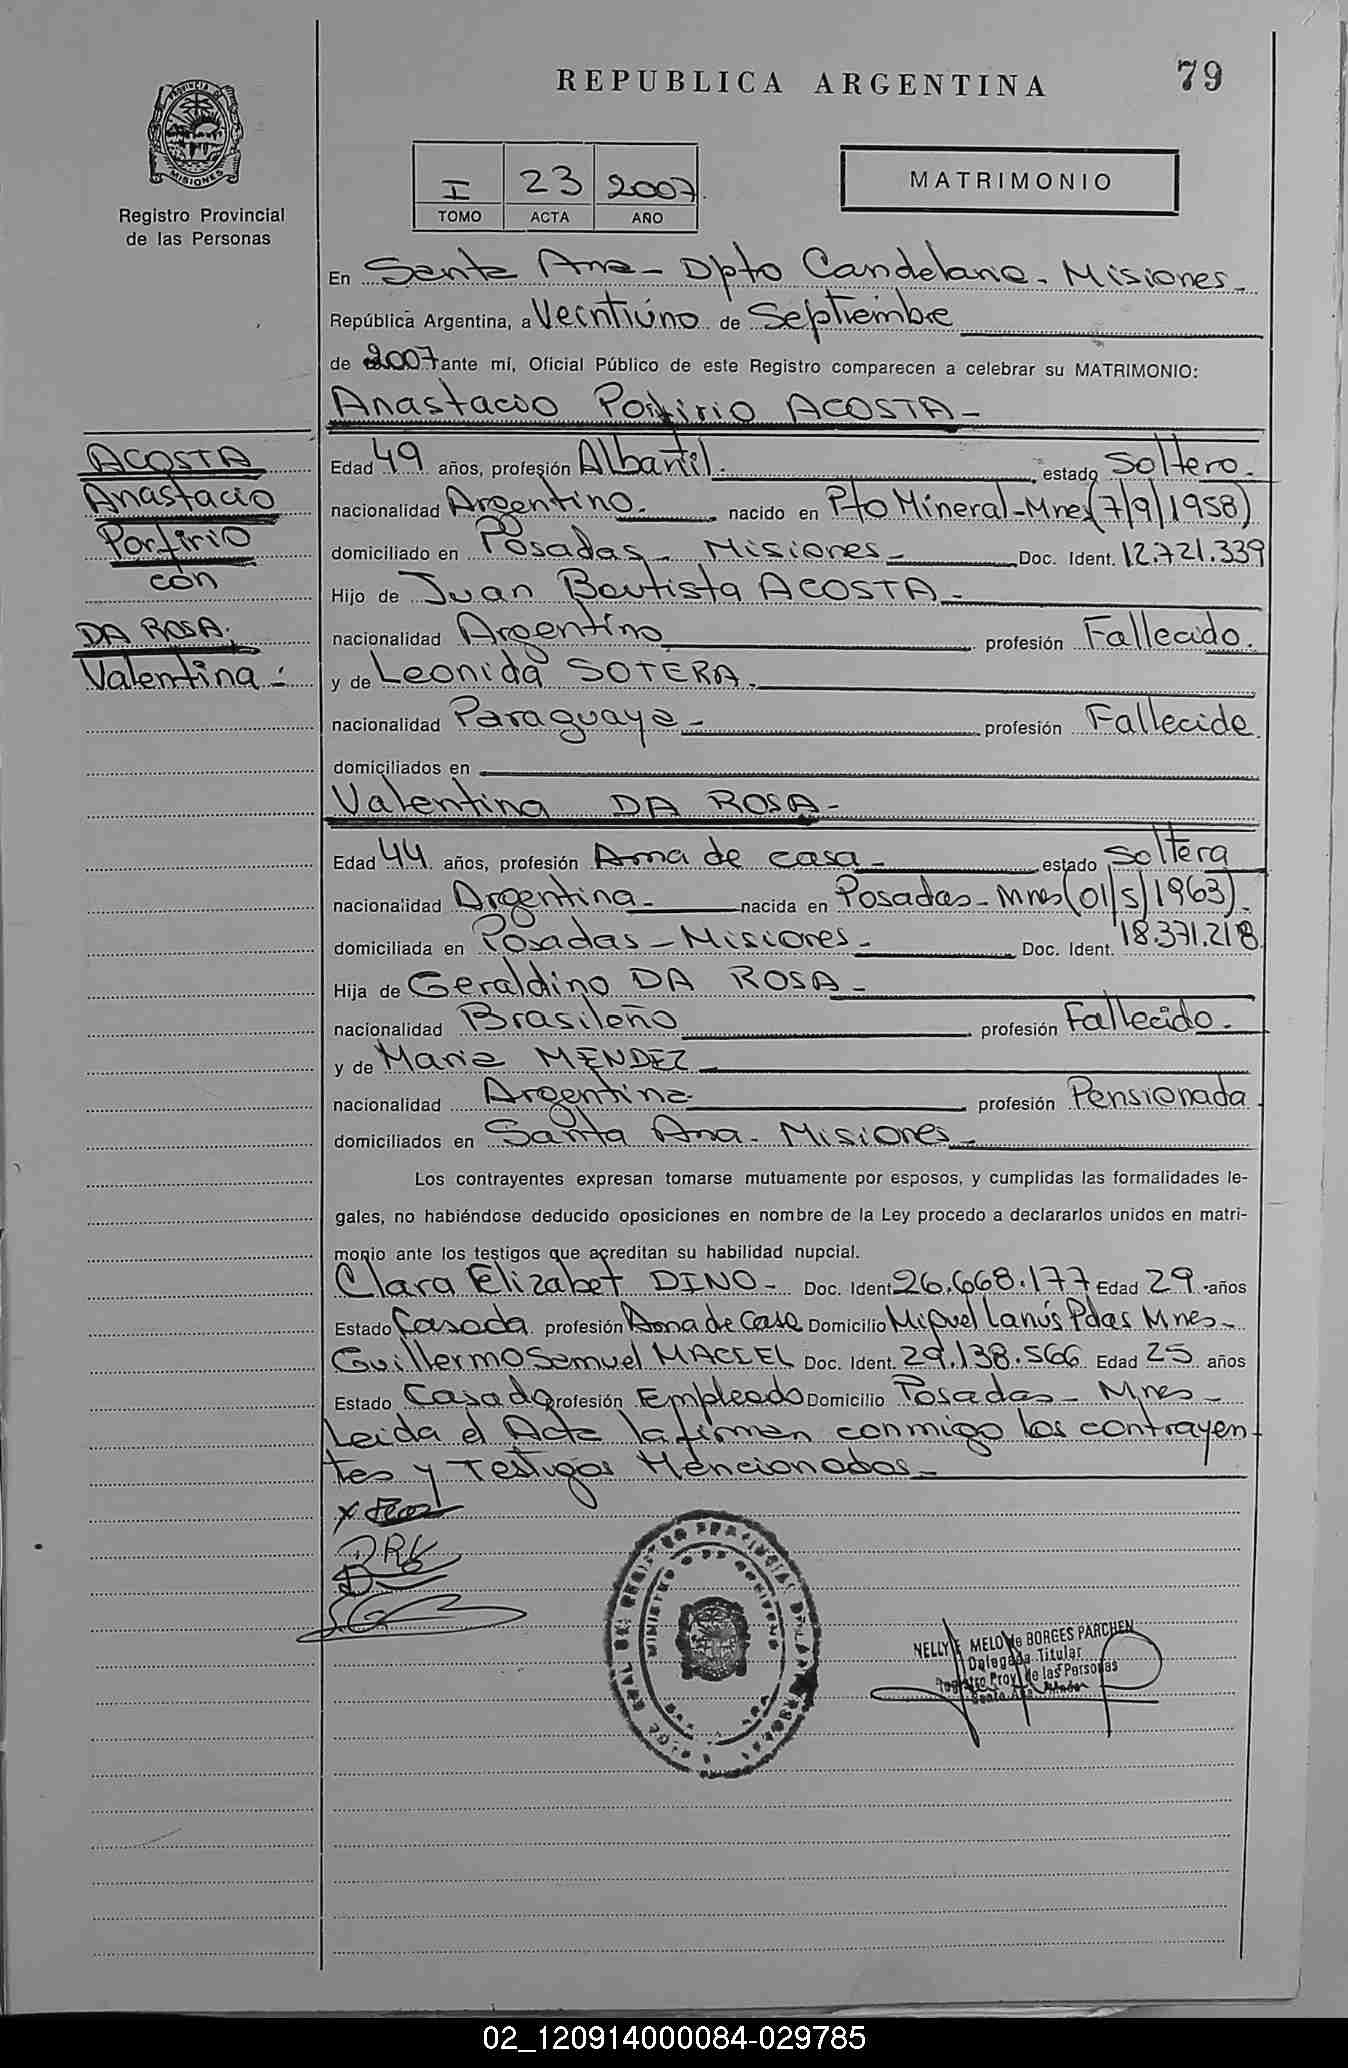 REPUBLICA ARGENTINA
79
PROVINCIA DE
MISIONES
Registro Provincial
de las Personas
I 23 2007
TOMO ACTA AÑO
MATRIMONIO
En Santa Ana - Dpto Candelaria - Misiones -
República Argentina, a Veintiuno de Septiembre
de 2007 ante mí, Oficial Público de este Registro comparecen a celebrar su MATRIMONIO:
Anastacio Porfirio ACOSTA -
ACOSTA
Anastacio
Porfirio
con
DA ROSA.
Valentina :
Edad 49 años, profesión Albañil. estado Soltero.
nacionalidad Argentino. nacido en Pto Mineral-Mnes (7/9/1958)
domiciliado en Posadas - Misiones - Doc. Ident. 12.721.339
Hijo de Juan Bautista ACOSTA -
nacionalidad Argentino profesión Fallecido.
y de Leonida SOTERA.
nacionalidad Paraguaya - profesión Fallecida
domiciliados en
Valentina DA ROSA -
Edad 44 años, profesión Ama de casa - estado Soltera
nacionalidad Argentina - nacida en Posadas - Mnes (01/5/1963).
domiciliada en Posadas - Misiones - Doc. Ident. 18.371.218
Hija de Geraldino DA ROSA -
nacionalidad Brasileño profesión Fallecido.
y de Maria MENDEZ
nacionalidad Argentina profesión Pensionada
domiciliados en Santa Ana - Misiones -
Los contrayentes expresan tomarse mutuamente por esposos, y cumplidas las formalidades le-
gales, no habiéndose deducido oposiciones en nombre de la Ley procedo a declararlos unidos en matri-
monio ante los testigos que acreditan su habilidad nupcial.
Clara Elizabet DINO - Doc. Ident. 26.668.177 Edad 29 años
Estado Casada profesión Ama de Casa Domicilio Miguel Lanús Pdas Mnes -
Guillermo Samuel MACIEL Doc. Ident. 29.138.566 Edad 25 años
Estado Casado profesión Empleado Domicilio Posadas - Mnes -
Leida el Acta la firman conmigo los contrayen
tes y Testigos Mencionados -
NELLY E. MELO de BORGES PARCHEN
Delegada Titular
Registro Prov. de las Personas
02_120914000084-029785